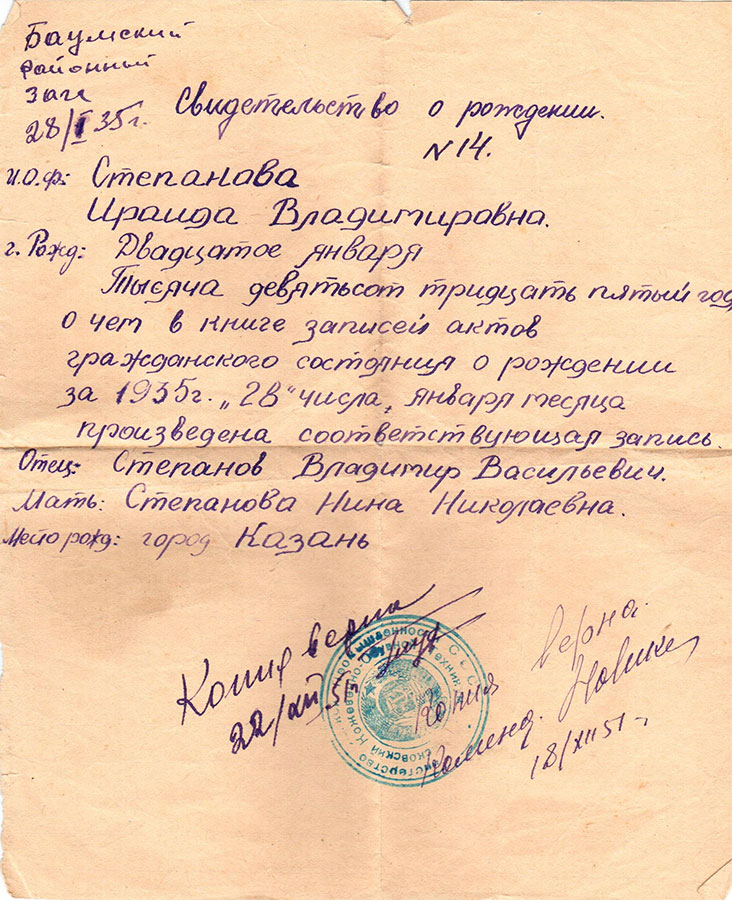 Баумский
районный
загс
28/I 35г.
Свидетельство о рождении.
N 14.
И.О.Ф: Степанова
Ираида Владимировна.
г. Рожд: Двадцатое января
Тысяча девятьсот тридцать пятый год
о чем в книге записей актов
гражданского состояния о рождении
за 1935г. „28" числа, января месяца
произведена соответствующая запись.
Отец: Степанов Владимир Васильевич.
Мать: Степанова Нина Николаевна.
Место рожд: город Казань
Копия верна
22/XII 51г
Копия верна
Коменд.
18/XII 51г